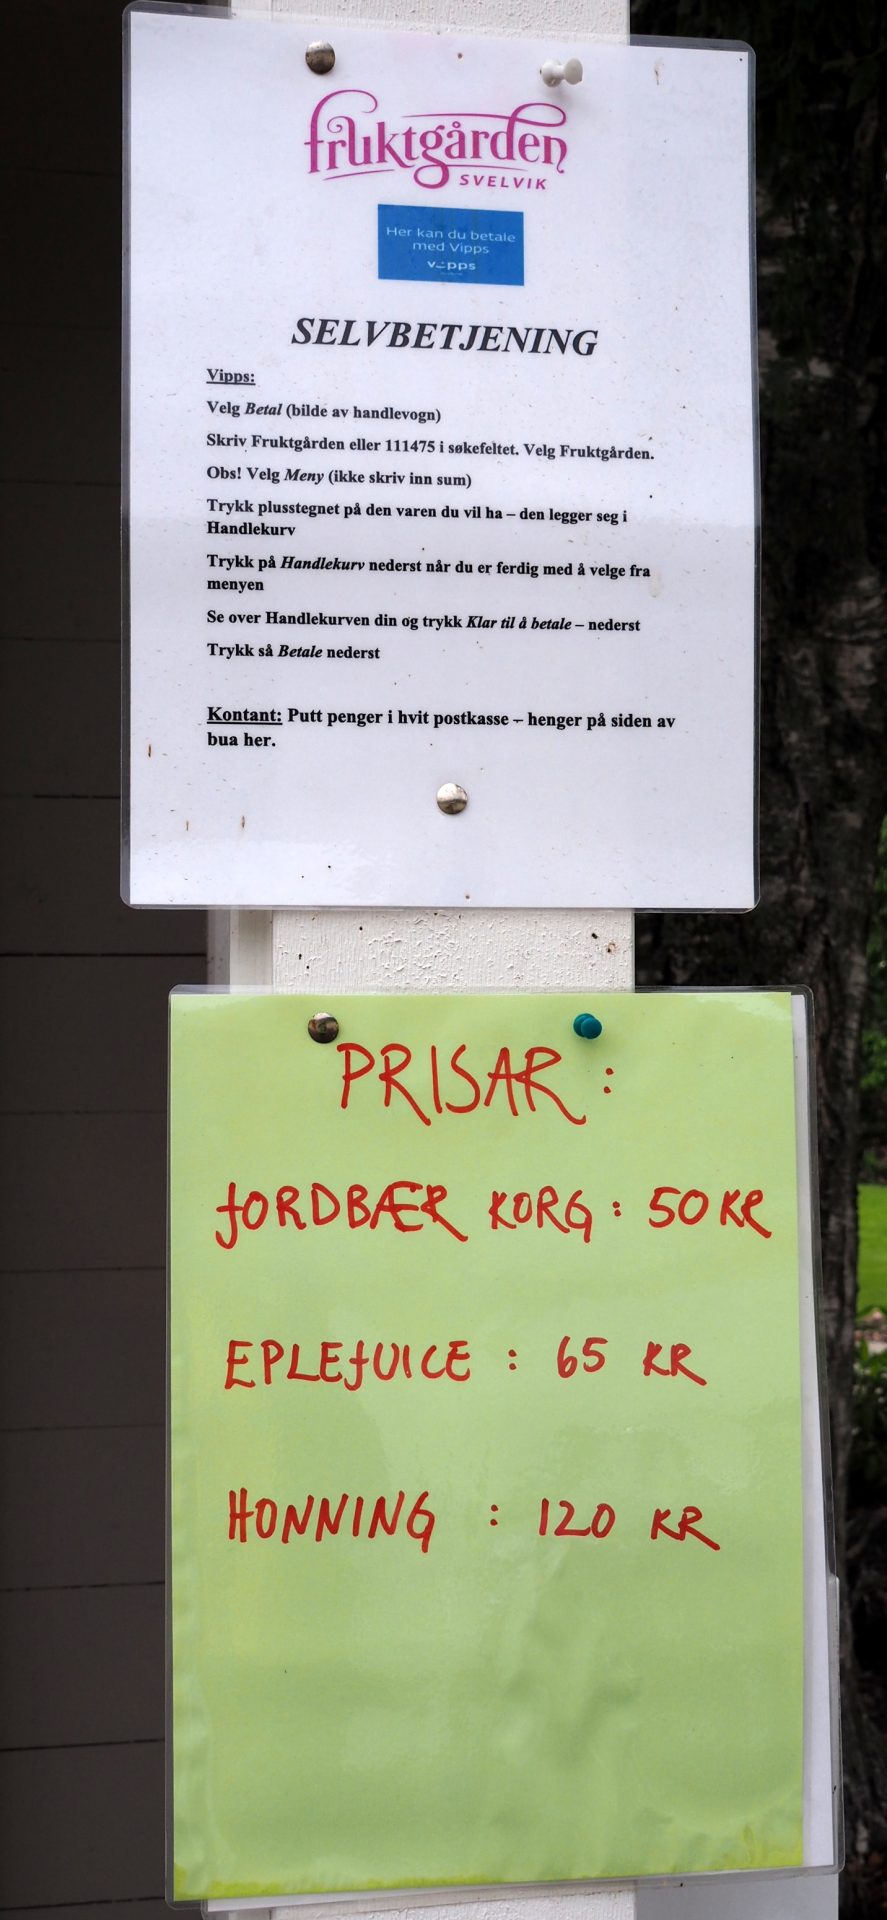 fruktgården
SVELVIK
Her kan du betale
med Vipps
vipps
SELVBETJENING
Vipps:
Velg Betal (bilde av handlevogn)
Skriv Fruktgården eller 111475 i søkefeltet. Velg Fruktgården.
Obs! Velg Meny (ikke skriv inn sum)
Trykk plusstegnet på den varen du vil ha – den legger seg i
Handlekurv
Trykk på Handlekurv nederst når du er ferdig med å velge fra
menyen
Se over Handlekurven din og trykk Klar til å betale – nederst
Trykk så Betale nederst
Kontant: Putt penger i hvit postkasse – henger på siden av
bua her.
PRISAR :
JORDBÆR KORG : 50 KR
EPLEJUICE : 65 KR
HONNING : 120 KR